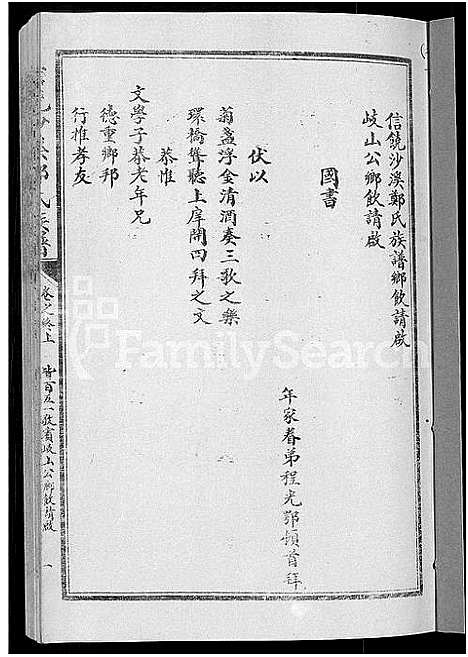 信饒沙溪鄭氏族譜鄉飲請啟
岐山公鄉飲請啟
國書
年家眷弟程光鄂頓首拜
伏以
蒭盞浮金清酒奏三歌之樂
環橋聳聽上庠開四拜之文
恭惟
文學子恭老年兄
德重鄉邦
行推孝友
卷之終上
公鄉飲請啟
一
FamilySearch